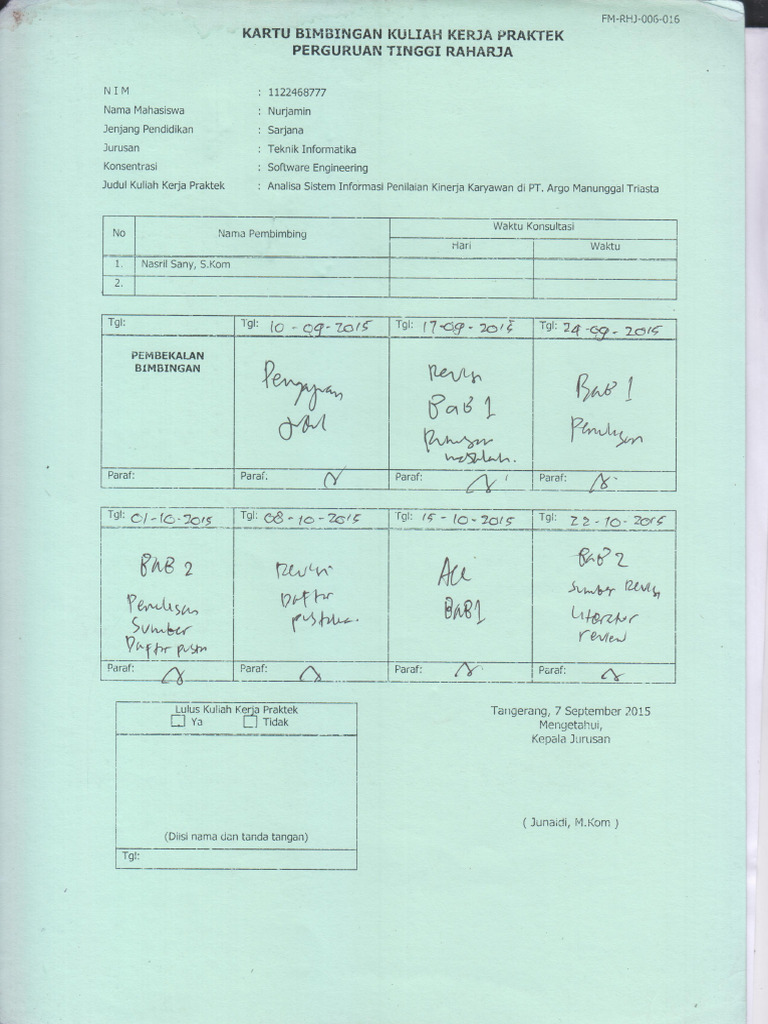 FM-RHJ-006-016
KARTU BIMBINGAN KULIAH KERJA PRAKTEK
PERGURUAN TINGGI RAHARJA
N I M : 1122468777
Nama Mahasiswa : Nurjamin
Jenjang Pendidikan : Sarjana
Jurusan : Teknik Informatika
Konsentrasi : Software Engineering
Judul Kuliah Kerja Praktek : Analisa Sistem Informasi Penilaian Kinerja Karyawan di PT. Argo Manunggal Triasta
No Nama Pembimbing Waktu Konsultasi
Hari Waktu
1. Nasril Sany, S.Kom
2.
Tgl: Tgl: 10-09-2015 Tgl: 17-09-2015 Tgl: 24-09-2015
PEMBEKALAN
BIMBINGAN
Pengajuan
Judul
Revisi
BAB 1
Rumusan
masalah.
BAB 1
Penulisan
Paraf: Paraf: Paraf: Paraf:
Tgl: 01-10-2015 Tgl: 08-10-2015 Tgl: 15-10-2015 Tgl: 22-10-2015
BAB 2
Penulisan
Sumber
Daftar
Revisi
Daftar
pustaka.
Acc
BAB 1
BAB 2
Sumber Revisi
Literatur
review
Paraf: Paraf: Paraf: Paraf:
Lulus Kuliah Kerja Praktek
Ya Tidak
(Diisi nama dan tanda tangan)
Tgl:
Tangerang, 7 September 2015
Mengetahui,
Kepala Jurusan
( Junaidi, M.Kom )